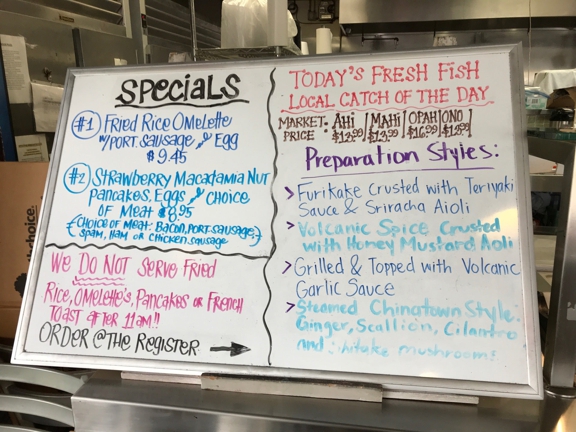 SPECIALS
#1 Fried Rice Omelette
w/PORT. SAUSAGE & Egg
$9.45
#2 Strawberry Macadamia Nut
Pancakes, Eggs & Choice
of Meat
{Choice of Meat: Bacon, Port. Sausage,
Spam, Ham or Chicken Sausage}
We DO NOT Serve Fried
Rice, Omelette's, Pancakes or French
Toast after 11am!!
ORDER @THE REGISTER
TODAY'S FRESH FISH
LOCAL CATCH OF THE DAY
MARKET PRICE: AHI | MAHI | OPAH | ONO
$13.99 | $16.99
Preparation Styles:
> Furikake Crusted with Teriyaki
Sauce & Sriracha Aioli
> Volcanic Spice Crusted
with Honey Mustard Aoli
> Grilled & Topped with Volcanic
Garlic Sauce
> Steamed Chinatown Style:
Ginger, Scallion, Cilantro
and mushrooms
choice